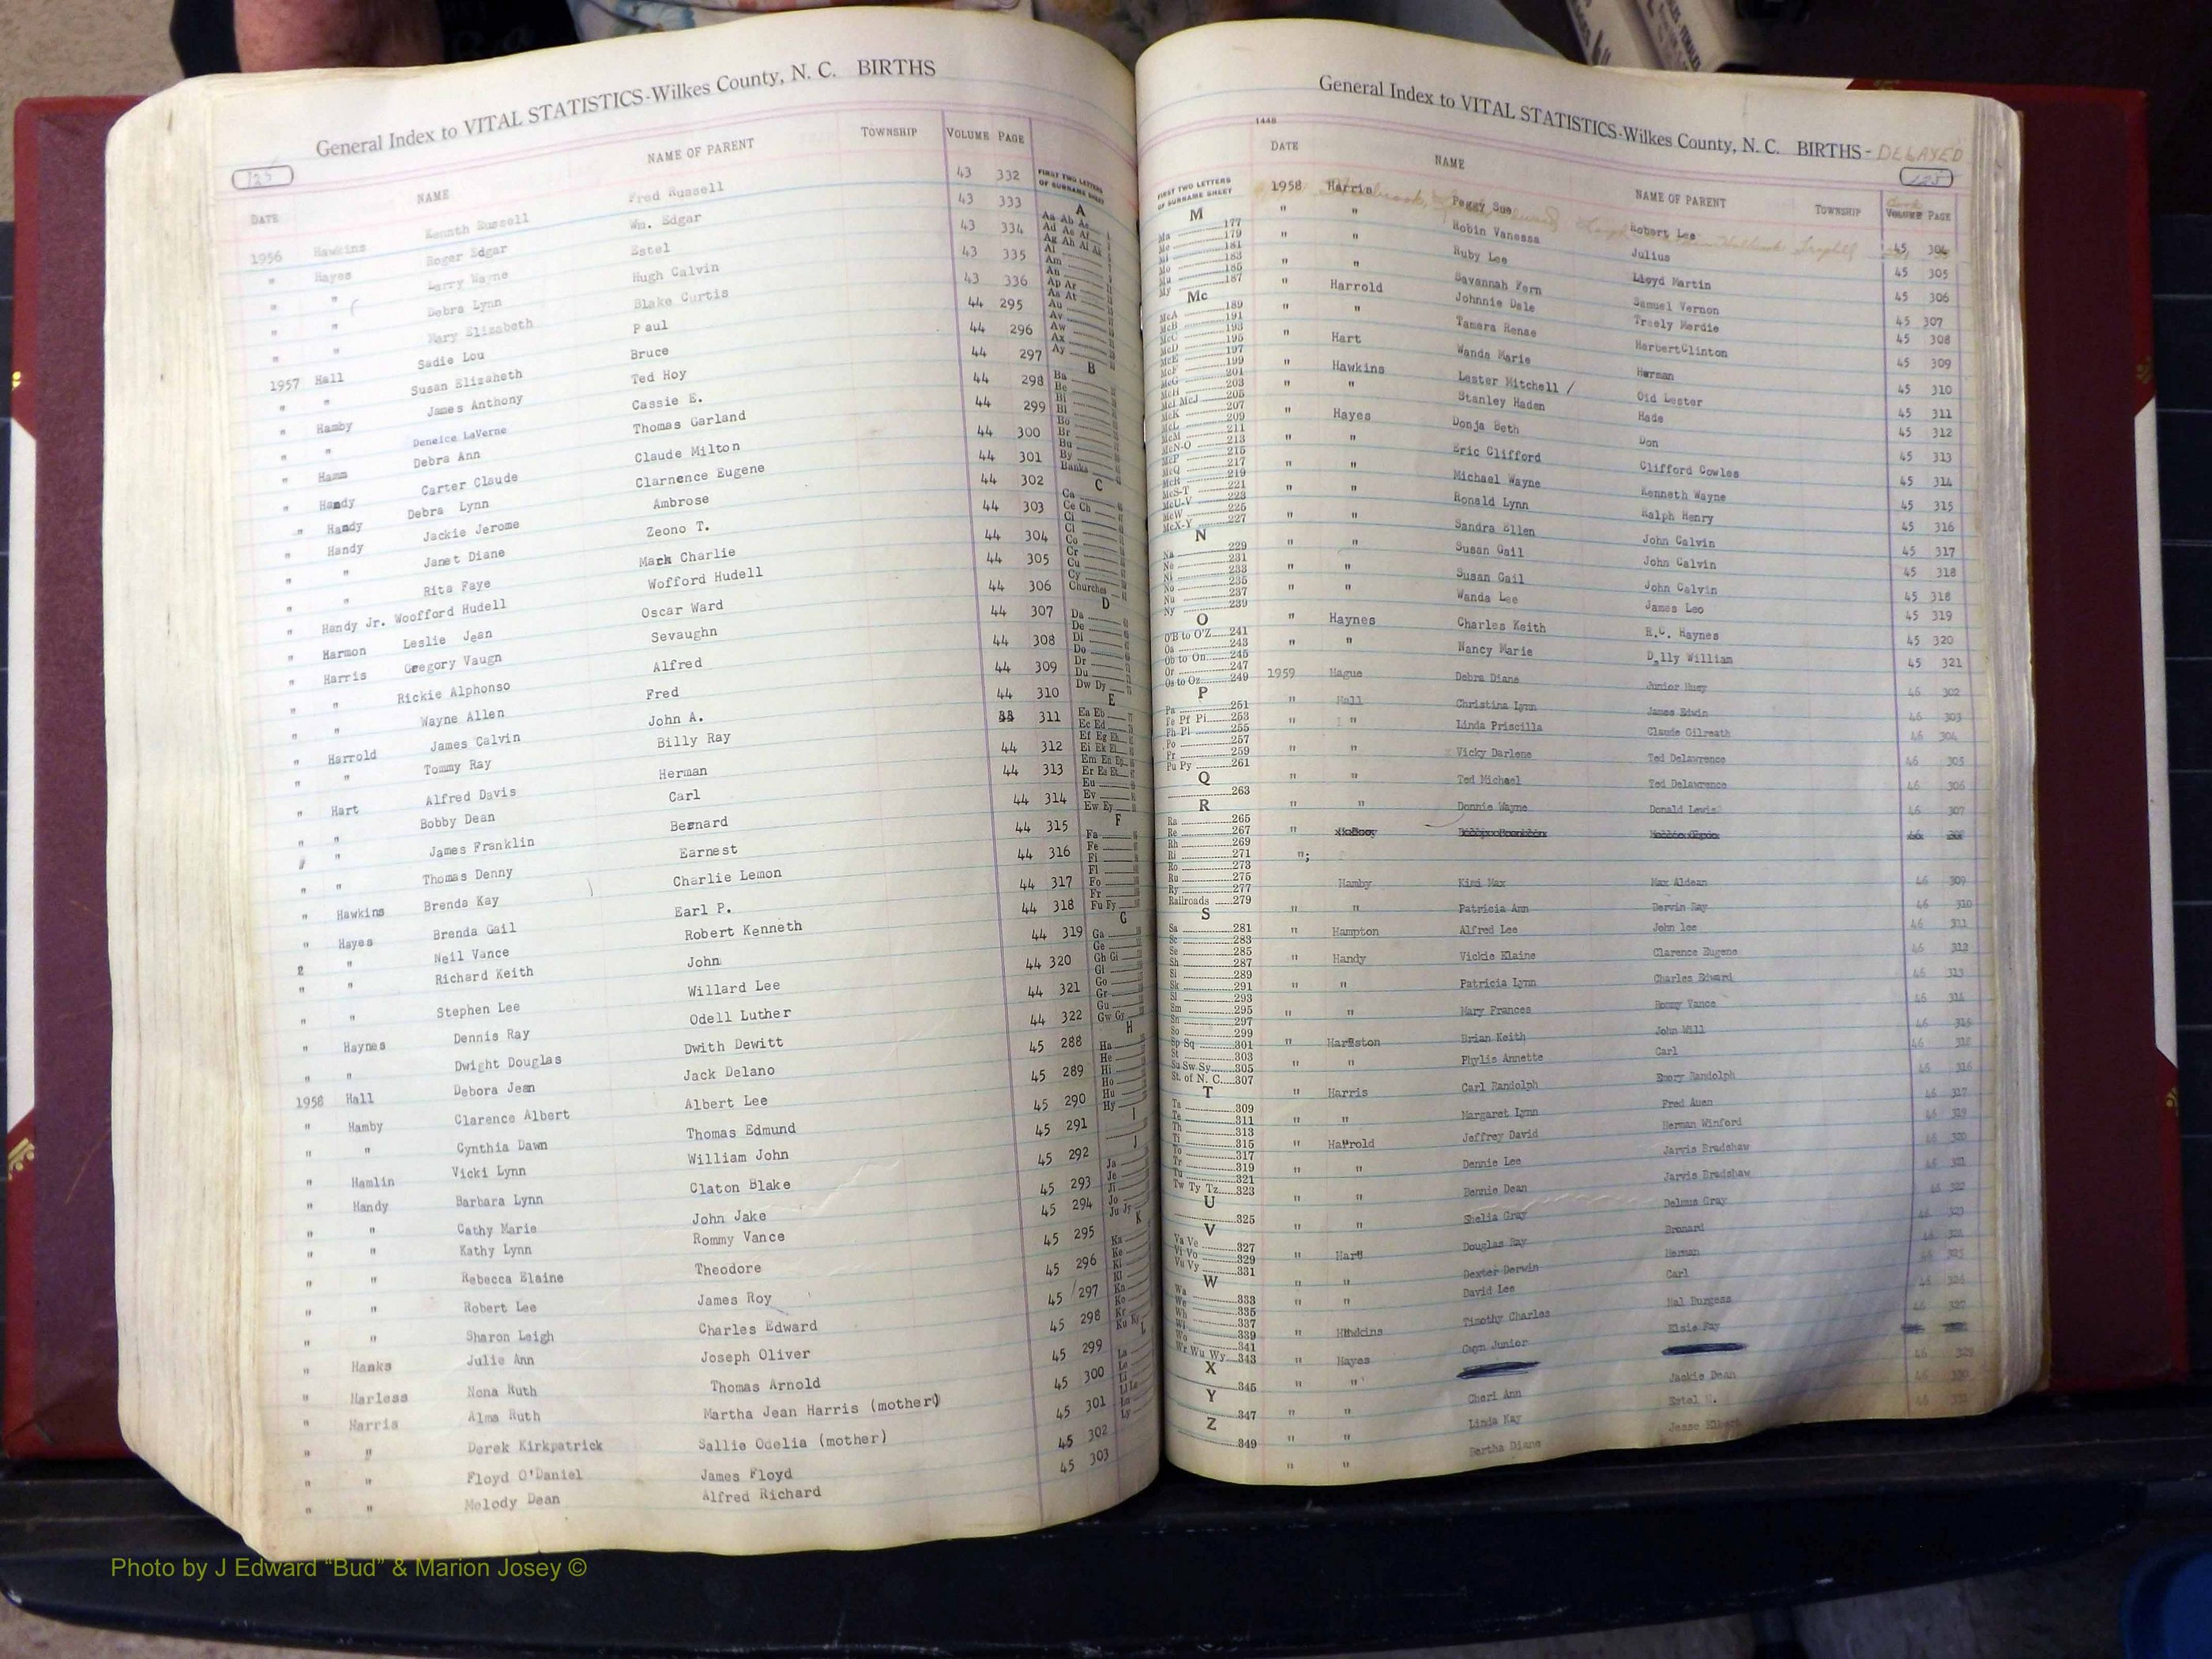 General Index to VITAL STATISTICS-Wilkes County, N. C. BIRTHS
125
DATE NAME NAME OF PARENT TOWNSHIP VOLUME PAGE
1956 Hawkins Kennth Russell Fred Russell 43 332
" Hayes Roger Edgar Wm. Edgar 43 333
" " Larry Wayne Estel 43 334
" " Debra Lynn Hugh Calvin 43 335
" " Mary Elizabeth Blake Curtis 43 336
1957 Hall Sadie Lou Paul 44 295
" " Susan Elizabeth Bruce 44 296
" Hamby James Anthony Ted Hoy 44 297
" " Deneice LaVerne Cassie E. 44 298
" Hamm Debra Ann Thomas Garland 44 299
" Handy Carter Claude Claude Milton 44 300
" Handy Debra Lynn Clarnence Eugene 44 301
" Handy Jackie Jerome Ambrose 44 302
" " Janet Diane Zeono T. 44 303
" " Rita Faye Mark Charlie 44 304
" Handy Jr. Woofford Hudell Wofford Hudell 44 305
" Harmon Leslie Jean Oscar Ward 44 306
" Harris Gregory Vaugn Sevaughn 44 307
" " Rickie Alphonso Alfred 44 308
" " Wayne Allen Fred 44 309
" Harrold James Calvin John A. 44 310
" " Tommy Ray Billy Ray 311
" Hart Alfred Davis Herman 44 312
" " Bobby Dean Carl 44 313
" " James Franklin Bernard 44 314
" " Thomas Denny Earnest 44 315
" Hawkins Brenda Kay Charlie Lemon 44 316
" Hayes Brenda Gail Earl P. 44 317
" " Neil Vance Robert Kenneth 44 318
" " Richard Keith John 44 319
" " Stephen Lee Willard Lee 44 320
" Haynes Dennis Ray Odell Luther 44 321
" " Dwight Douglas Dwith Dewitt 44 322
1958 Hall Debora Jean Jack Delano 45 288
" Hamby Clarence Albert Albert Lee 45 289
" " Cynthia Dawn Thomas Edmund 45 290
" Hamlin Vicki Lynn William John 45 291
" Handy Barbara Lynn Claton Blake 45 292
" " Cathy Marie John Jake 45 293
" " Kathy Lynn Rommy Vance 45 294
" " Rebecca Elaine Theodore 45 295
" " Robert Lee James Roy 45 296
" " Sharon Leigh Charles Edward 45 297
" Hanks Julie Ann Joseph Oliver 45 298
" Harless Nona Ruth Thomas Arnold 45 299
" Harris Alma Ruth Martha Jean Harris (mother) 45 300
" " Derek Kirkpatrick Sallie Odelia (mother) 45 301
" " Floyd O'Daniel James Floyd 45 302
" " Melody Dean Alfred Richard 45 303
FIRST TWO LETTERS
OF SURNAME SHEET
A
Aa Ab Ac
Ad Ae Af
Ag Ah Ai Ak
Al
Am
An
Ap Ar
As At
Au
Av
Aw
Ax
Ay
B
Ba
Be
Bi
Bl
Bo
Br
Bu
By
Banks
C
Ca
Ce Ch
Ci
Cl
Co
Cr
Cu
Cy
Churches
D
Da
De
Di
Do
Dr
Du
Dw Dy
E
Ea Eb
Ec Ed
Ef Eg Eh
Ei Ek El
Em En Ep
Er Es Et
Eu
Ev
Ew Ey
F
Fa
Fe
Fi
Fl
Fo
Fr
Fu Fy
G
Ga
Ge
Gh Gi
Gl
Go
Gr
Gu
Gw Gy
H
Ha
He
Hi
Ho
Hu
Hy
I
J
Ja
Je
Ji
Jo
Ju Jy
K
Ka
Ke
Ki
Kl
Kn
Ko
Kr
Ku Ky
L
La
Le
Li
Ll Lo
Lu
Ly
General Index to VITAL STATISTICS-Wilkes County, N. C. BIRTHS - DELAYED
1448
125
FIRST TWO LETTERS
OF SURNAME SHEET
M
Ma 177
Me 179
Mi 181
Mo 183
Mu 185
My 187
Mc
McA 189
McB 191
McC 193
McD 195
McE 197
McF 199
McG 201
McH 203
McI McJ 205
McK 207
McL 209
McM 211
McN-O 213
McP 215
McQ 217
McR 219
McS-T 221
McU-V 223
McW 225
McX-Y 227
N
Na 229
Ne 231
Ni 233
No 235
Nu 237
Ny 239
O
O'B to O'Z 241
Oa 243
Ob to On 245
Or 247
Os to Oz 249
P
Pa 251
Pe Pf Pi 253
Ph Pl 255
Po 257
Pr 259
Pu Py 261
Q
263
R
Ra 265
Re 267
Rh 269
Ri 271
Ro 273
Ru 275
Ry 277
Railroads 279
S
Sa 281
Sc 283
Se 285
Sh 287
Si 289
Sk 291
Sl 293
Sm 295
Sn 297
So 299
Sp Sq 301
St 303
Su Sw Sy 305
St. of N. C. 307
T
Ta 309
Te 311
Th 313
Ti 315
To 317
Tr 319
Tu 321
Tw Ty Tz 323
U
325
V
Va Ve 327
Vi Vo 329
Vu Vy 331
W
Wa 333
We 335
Wh 337
Wi 339
Wo 341
Wr Wu Wy 343
X
345
Y
347
Z
349
DATE NAME NAME OF PARENT TOWNSHIP Book VOLUME PAGE
1958 Harris Peggy Sue Robert Lee 45 304
" " Robin Vanessa Julius 45 305
" " Ruby Lee Lloyd Martin 45 306
" " Savannah Fern Samuel Vernon 45 307
" Harrold Johnnie Dale Treely Merdie 45 308
" " Tamara Renae HerbertClinton 45 309
" Hart Wanda Marie Herman 45 310
" Hawkins Lester Mitchell Oid Lester 45 311
" " Stanley Haden Hade 45 312
" Hayes Donja Beth Don 45 313
" " Eric Clifford Clifford Cowles 45 314
" " Michael Wayne Kenneth Wayne 45 315
" " Ronald Lynn Ralph Henry 45 316
" " Sandra Ellen John Calvin 45 317
" " Susan Gail John Calvin 45 318
" " Susan Gail John Calvin 45 318
" " Wanda Lee James Leo 45 319
" Haynes Charles Keith R.C. Haynes 45 320
" " Nancy Marie D lly William 45 321
1959 Hague Debra Diane Junior Huey 46 302
" Hall Christina Lynn James Edwin 46 303
" " Linda Priscilla Claude Gilreath 46 304
" " Vicky Darlene Ted Delawrence 46 305
" " Ted Michael Ted Delawrence 46 306
" " Donnie Wayne Donald Lewis 46 307
";
Hamby Kimi Max Max Aldean 46 309
" " Patricia Ann Dervin Ray 46 310
" Hampton Alfred Lee John lee 46 311
" Handy Vickie Elaine Clarence Eugene 46 312
" " Patricia Lynn Charles Edward 46 313
" " Mary Frances Rommy Vance 46 314
" Brian Keith John Will 46 315
" " Phylis Annette Carl 46
" Harris Carl Randolph Emory Randolph 46 316
" " Margaret Lynn Fred Auen 46 317
" Harrold Jeffrey David Herman Winford 46 319
" " Dennie Lee Jarvis Bradshaw 46 320
" " Bennie Dean Jarvis Bradshaw 46 321
" " Shelia Gray Delmus Gray 46 322
" Hart Douglas Ray 46 323
" " Dexter Derwin Herman
" " David Lee Carl 46 325
" Hawkins Timothy Charles Hal Burgess 46 326
" Hayes Guyn Junior Elsie Fay 46 327
" "
" " Cheri Ann Jackie Dean 46 329
" " Linda Kay Estel M. 46 330
" " Bertha Diane Jesse
Photo by J Edward “Bud” & Marion Josey ©